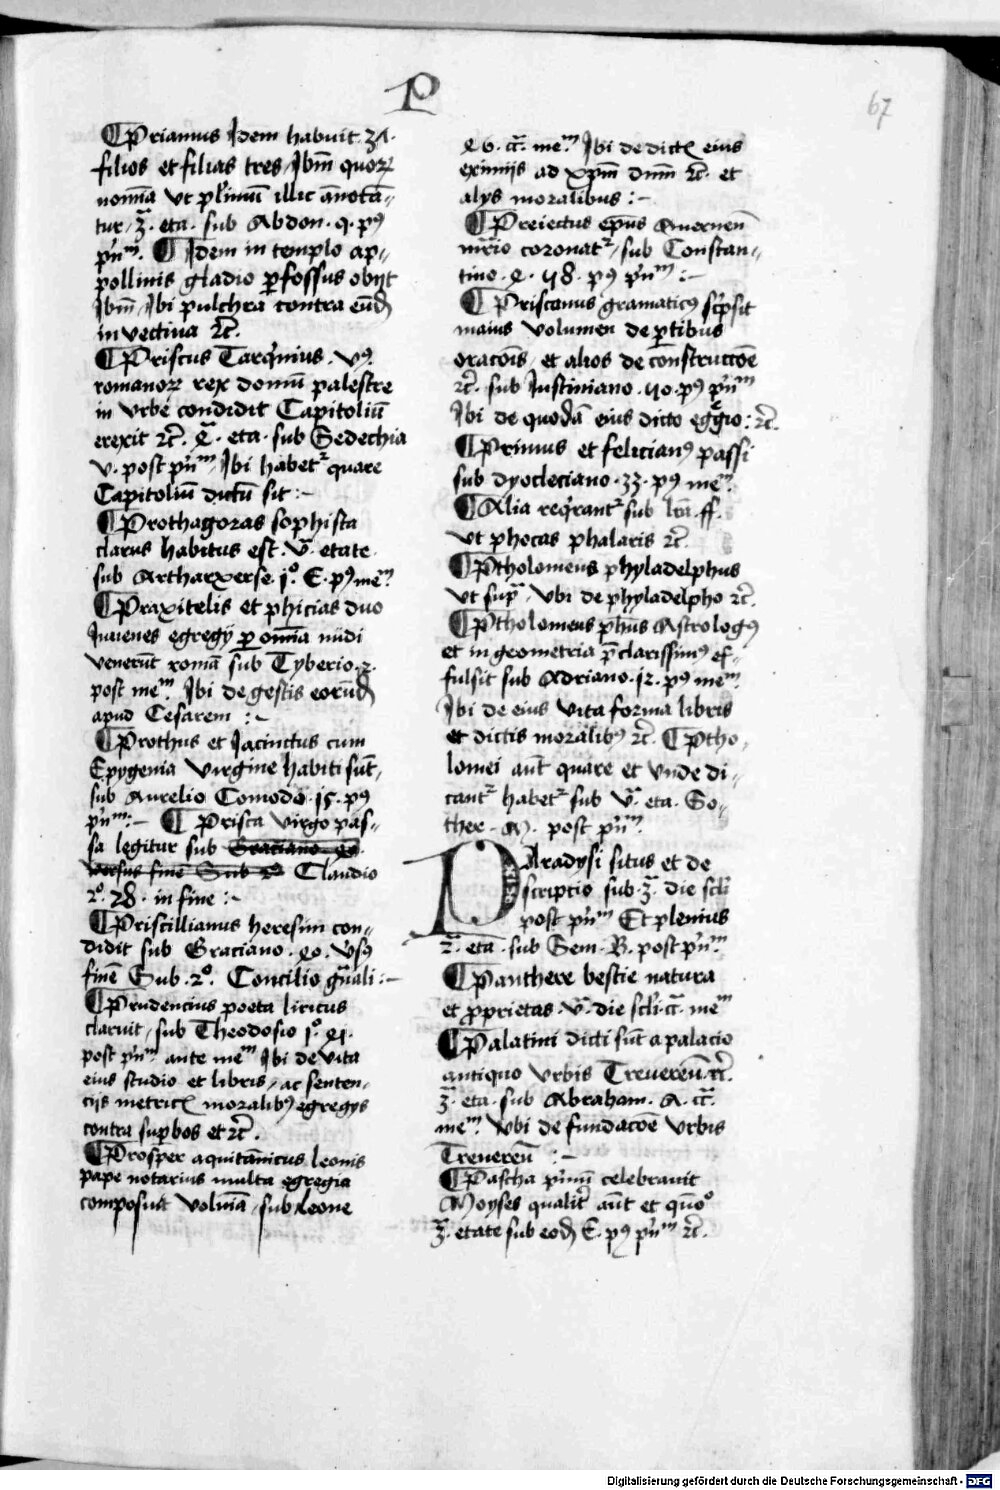 P
67
¶ Priamus Idem habuit 3A.
filios et filias tres Ibm̄ quoꝝ
nom̄ia vt pl̄imū illic ān̄otā-
tur, 3ͣ. eta. sub Abdon. q. pꝰ
pn̄mͫ. ¶ Idem in templo ap-
pollinis gladio ꝑfossus obijt
Ibm̄ Ibi pulchra contra eūdē
inuectiua ꝛc̄.
¶ Priscus Tarqͥnius. vꝰ.
romanoꝝ rex domū palestre
in vrbe condidit Capitoliū
erexit ꝛc̄. eta. sub Sedechia
v. post pn̄mͫ Ibi habetᷣ quare
Capitoliū dictū sit :-
¶ Prothagoras sophista
clarus habitus est. vͣ. etate.
sub Artharxerse. 1º. E. pꝰ meͫ.
¶ Praxitelis et phicias duo
Iuuenes egregij ꝑ om̄ia nūdi
venerūt romā sub Tyberio. 2.
post meͫ. Ibi de gestis eorūdē
apud Cesarem :-
¶ Prothus et Jacinctus cum
Epygenia virgine habiti sūt,
sub Aurelio Comodo. 15. pꝰ
pn̄mͫ :- ¶ Prisca virgo pas-
sa legitur sub Graciano. 80.
versus finē Sub 2º Claudio
2º. 28. in fine :-
¶ Priscillianus heresim con-
didit sub Graciano. 80. v̄sꝰ
finē Sub. 2º. Concilio gn̄ali :-
¶ Prudencius poeta liricus
claruit, sub Theodosio 1º. 81.
post pn̄mͫ. ante meͫ Ibi de vita
eius studio et libris, ac senten-
cijs metricꝭ moralibꝰ egregijs
contra suꝑbos et ꝛc̄.
¶ Prosper aquitanicus leonis
pape notarius multa egregia
composuit volmīa, sub leone
86. cͣ. meͫ. Ibi de dictꝭ eius
eximijs ad xpm̄ dnm̄ ꝛc̄. et
alijs moralibus :-
¶ Preiectus ep̄us Auernen̄
mr̄io coronatᷣ, sub Constan-
tino. 8. 48. pꝰ pn̄mͫ :-
¶ Priscianus gramaticꝰ scͥpsit
maius volumen de ꝑtibus
orac̄ois, et alios de construcc̄oe
ꝛc̄. sub Justiniano. 40. pꝰ pn̄mͫ
Ibi de quodā eius dicto egͤgio : ꝛc̄.
¶ Primus et felicianꝰ passi
sub dyocleciano. 33. pꝰ meͫ.
¶ Alia reqͥrantᷣ sub lr̄a. ff.
vt phocas phalaris ꝛc̄.
¶ Ptholomeus phyladelphus
vt supͣ, vbi de phyladelpho ꝛc̄.
¶ Ptholomeus ph̄us Astrologꝰ
et in geometria p̄clarissimꝰ ef-
fulsit sub Adriano. 12. pꝰ meͫ.
Ibi de eius vita forma libris
et dictis moralibꝰ ꝛc̄. ¶ Ptho-
lomei aūt quare et vnde di-
cantᷣ habetᷣ sub vͣ. eta. So-
ther. M. post pn̄mͫ.
Paradysi situs et de
scriptio sub. 3ͣ. die scli
post pn̄mͫ Et plenius
2ͣ. eta. sub Sem. B. post pn̄mͫ.
¶ Panthere bestie natura
et ꝓprietas vͣ. die scli. cͣ. meͫ
¶ Palatini dicti sūt a palacio
antiquo vrbis Treueren̄. ꝛc̄.
3ͣ. eta. sub Abraham. A. cͣ.
meͫ. vbi de fundac̄oe vrbis
Treueren̄ :-
¶ Pascha pͥmū celebrauit
Moyses qualiť aūt et quōº
3ͣ. etate sub eodē E. pꝰ pn̄mͫ ꝛc̄.
Digitalisierung gefördert durch die Deutsche Forschungsgemeinschaft - DFG